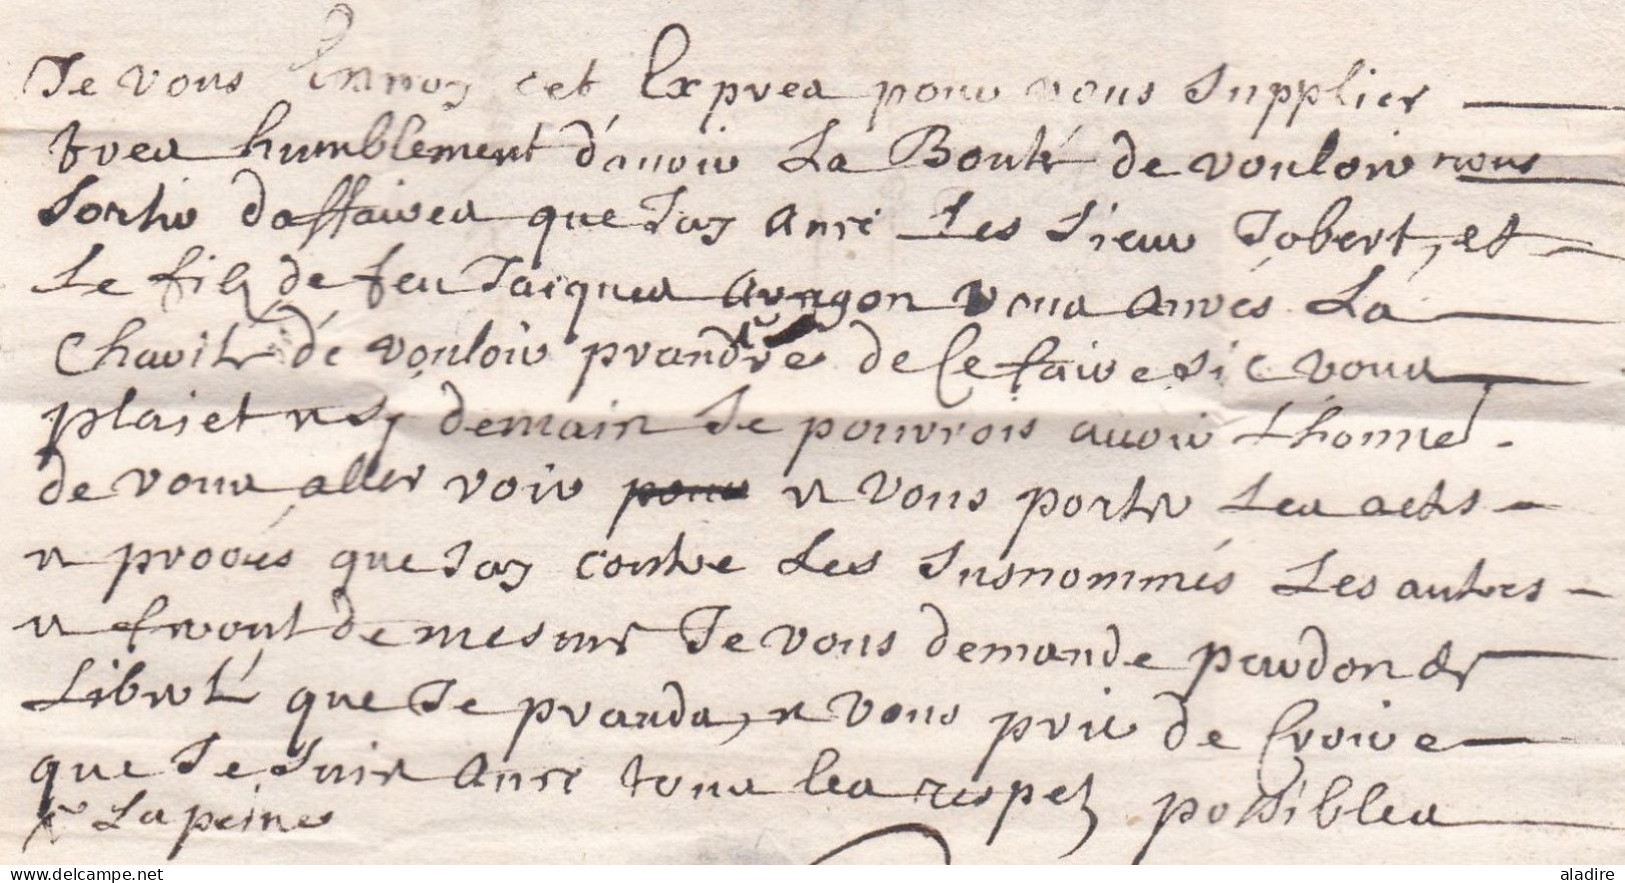 Je vous Ennoy cet Expres pour vous supplier
tres humblement d'auoir La Bonté de vouloir nous
sortir daffaires que Jay auec Les sieur Jobert, et
Le filz de feu Jaiques Aragon vous auvés La
Charité dé vouloir prandre de Ce faire sic vous
plaiet et sy demain Je pouvrois auoir Lhonne.
de vous aller voir pour et vous porter Les acts
et procés que Jay contre Les susnommés Les autres
et feront de mesme Je vous demande pardon de
Liberté que Je prands, et vous prie de Croire
que Je suis auec tous les respetz possibles
La peine
delcampe.net
aladire